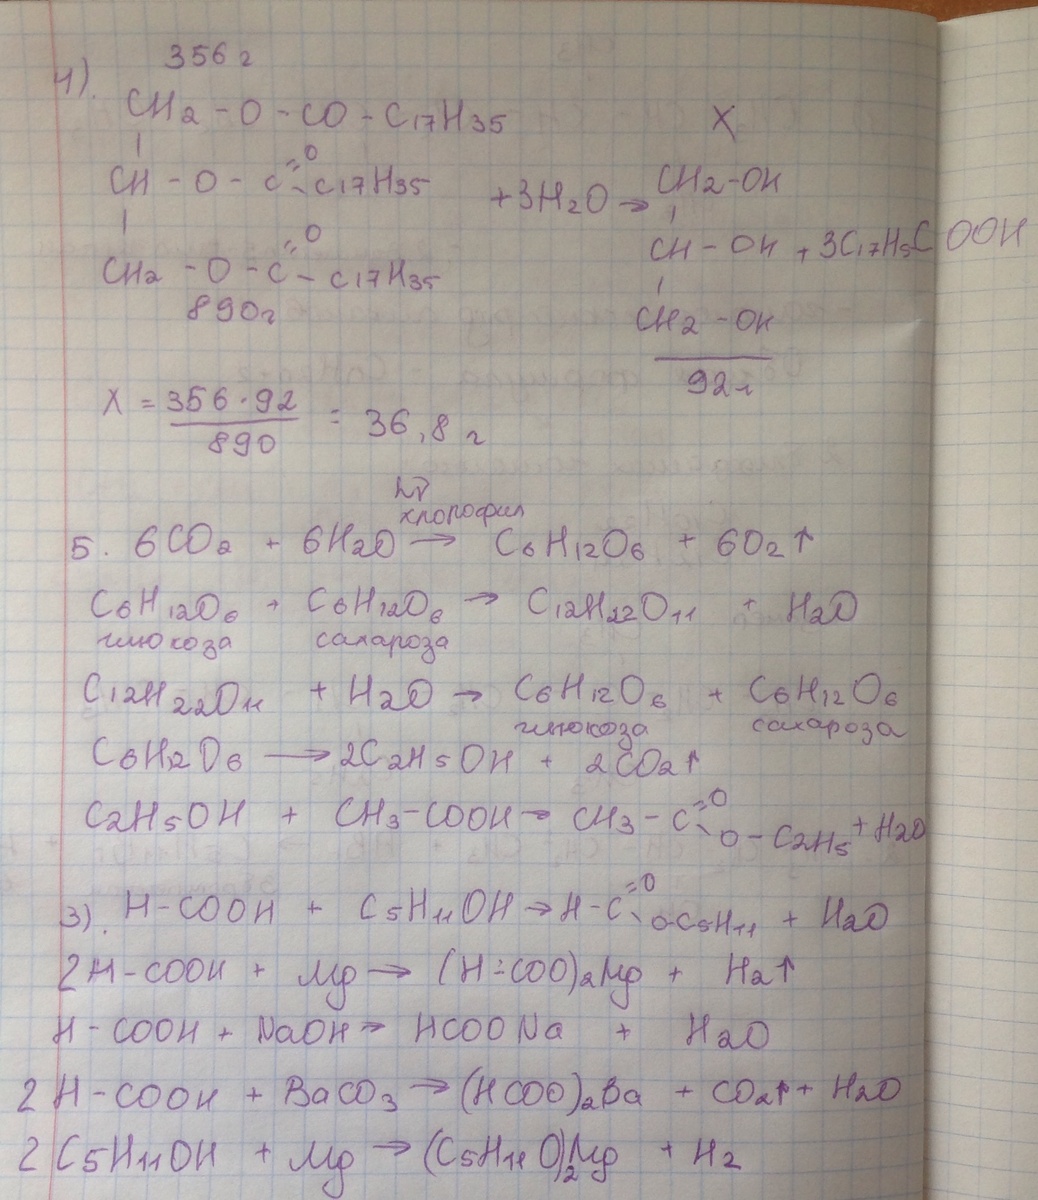 4).
356 г
CH2 - O - CO - C17H35
X
CH - O - C =O - C17H35 + 3H2O → CH2-OH
CH - OH + 3C17H5COOH
CH2 - O - C =O - C17H35
CH2 - OH
890г
92г
X = 356 · 92 / 890 = 36,8 г
hν
хлорофил
5. 6CO2 + 6H2O → C6H12O6 + 6O2↑
C6H12O6 + C6H12O6 → C12H22O11 + H2O
глюкоза сахароза
C12H22O11 + H2O → C6H12O6 + C6H12O6
глюкоза сахароза
C6H12O6 → 2C2H5OH + 2CO2↑
C2H5OH + CH3-COOH → CH3 - C =O - O - C2H5 + H2O
3). H-COOH + C5H11OH → H-C =O - O-C5H11 + H2O
2H-COOH + Mg → (H-COO)2Mg + H2↑
H-COOH + NaOH → HCOONa + H2O
2H-COOH + BaCO3 → (HCOO)2Ba + CO2↑ + H2O
2C5H11OH + Mg → (C5H11O)2Mg + H2